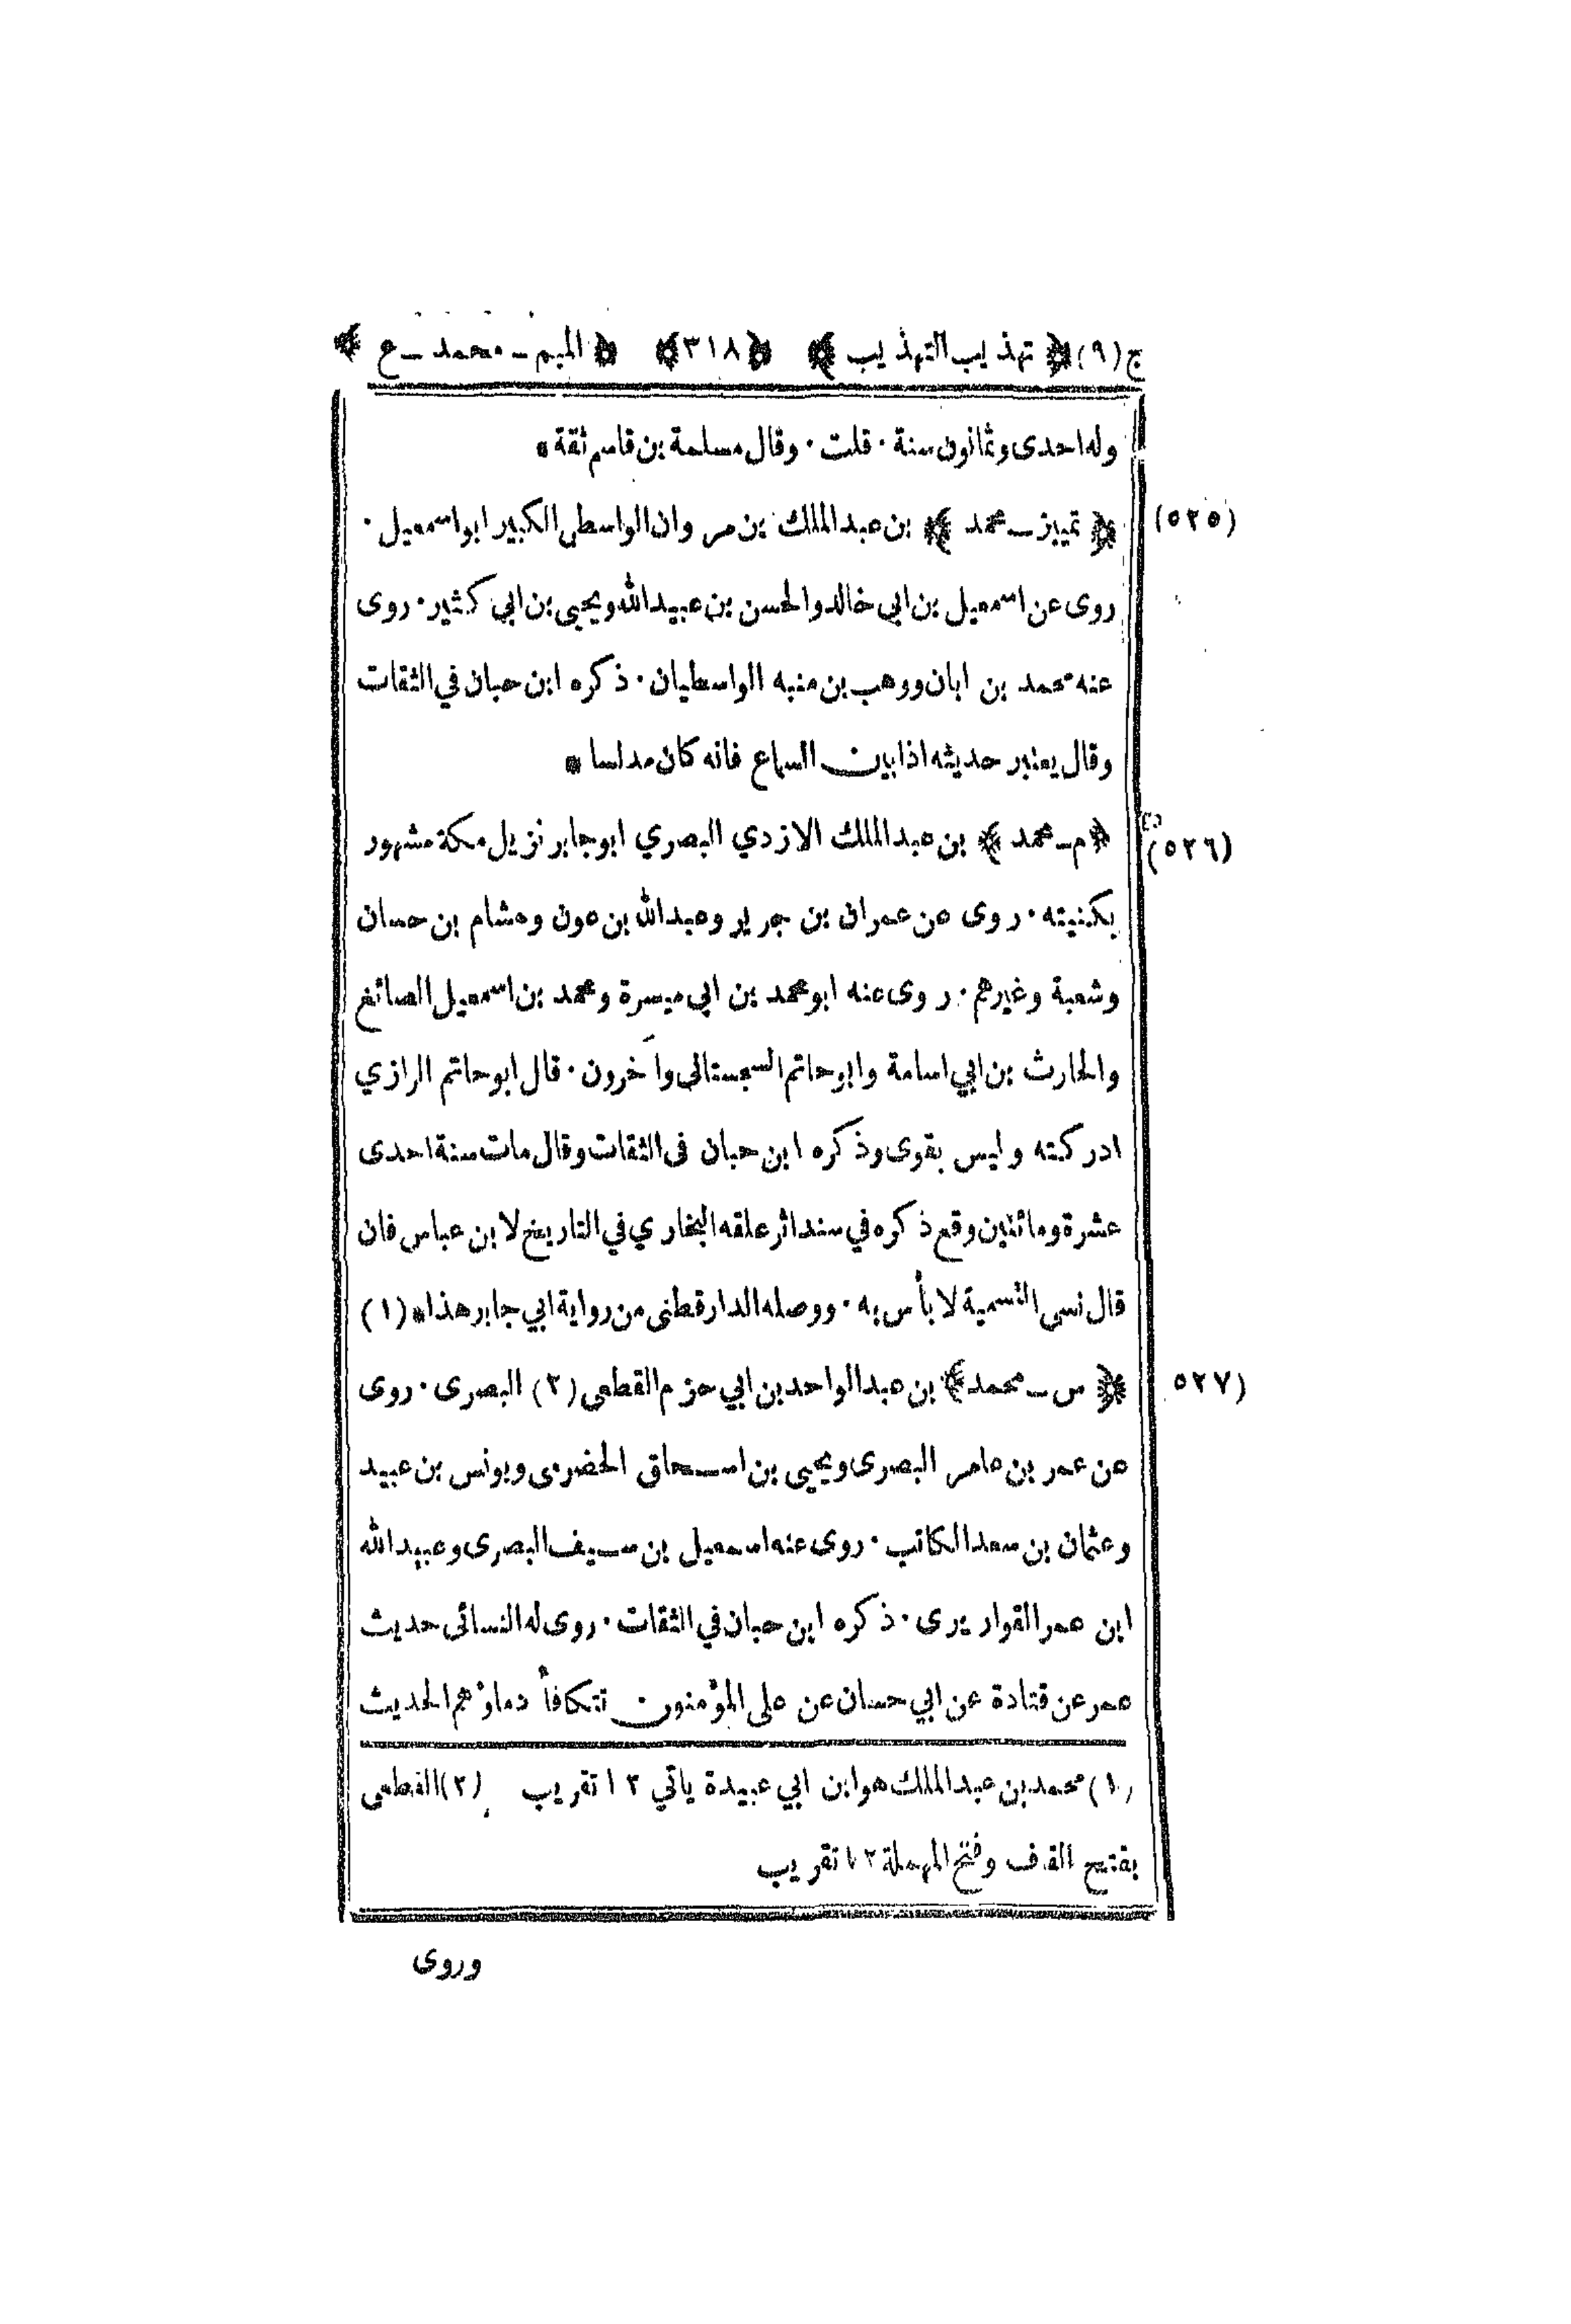 ج(٩) ﴿ تهذيب التهذيب ﴾ ﴿٣١٨﴾ ﴿ الميم ـ محمد ـ ع ﴾
وله احدى وثمانون سنة · قلت · وقال مسلمة بن قاسم ثقة *
(٥٢٥) ﴿ تمييز ـ محمد ﴾ بن عبد الملك بن مروان الواسطى الكبير ابو اسمعيل ·
روى عن اسمعيل بن ابي خالد والحسن بن عبيد الله ويحيى بن ابي كثير · روى
عنه محمد بن ابان ووهب بن منبه الواسطيان · ذكره ابن حبان في الثقات
وقال يعتبر حديثه اذا بين السماع فانه كان مدلسا *
(٥٢٦) ﴿ م ـ محمد ﴾ بن عبد الملك الازدي البصري ابو جابر نزيل مكة مشهور
بكنيته · روى عن عمران بن جرير وعبد الله بن عون وهشام بن حسان
وشعبة وغيرهم · روى عنه ابو محمد بن ابي ميسرة ومحمد بن اسمعيل الصائغ
والحارث بن ابي اسامة وابو حاتم السجستانى وآخرون · قال ابو حاتم الرازي
ادركته وليس بقوى وذكره ابن حبان فى الثقات وقال مات سنة احدى
عشرة ومائتين وقع ذكره في سند اثر علقه البخاري في التاريخ لابن عباس فان
قال نسى التسمية لا بأس به · ووصله الدارقطنى من رواية ابي جابر هذا * (١)
(٥٢٧) ﴿ س ـ محمد ﴾ بن عبد الواحد بن ابي حزم القطعى (٢) البصرى · روى
عن عمر بن عامر البصرى ويحيى بن اسحاق الحضرمى ويونس بن عبيد
وعثمان بن سعد الكاتب · روى عنه اسمعيل بن سيف البصرى وعبيد الله
ابن عمر القواريرى · ذكره ابن حبان في الثقات · روى له النسائى حديث
عمر عن قتادة عن ابي حسان عن على المؤمنون تتكافأ دماؤهم الحديث
(١) محمد بن عبد الملك هو ابن ابي عبيدة ياتي ١٢ تقريب (٢) القطعى
بفتح القاف وفتح المهملة ١٢ تقريب
وروى